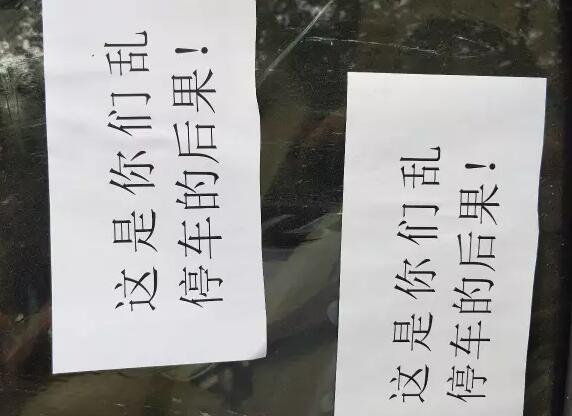 这是你们乱
停车的后果！
这是你们乱
停车的后果！